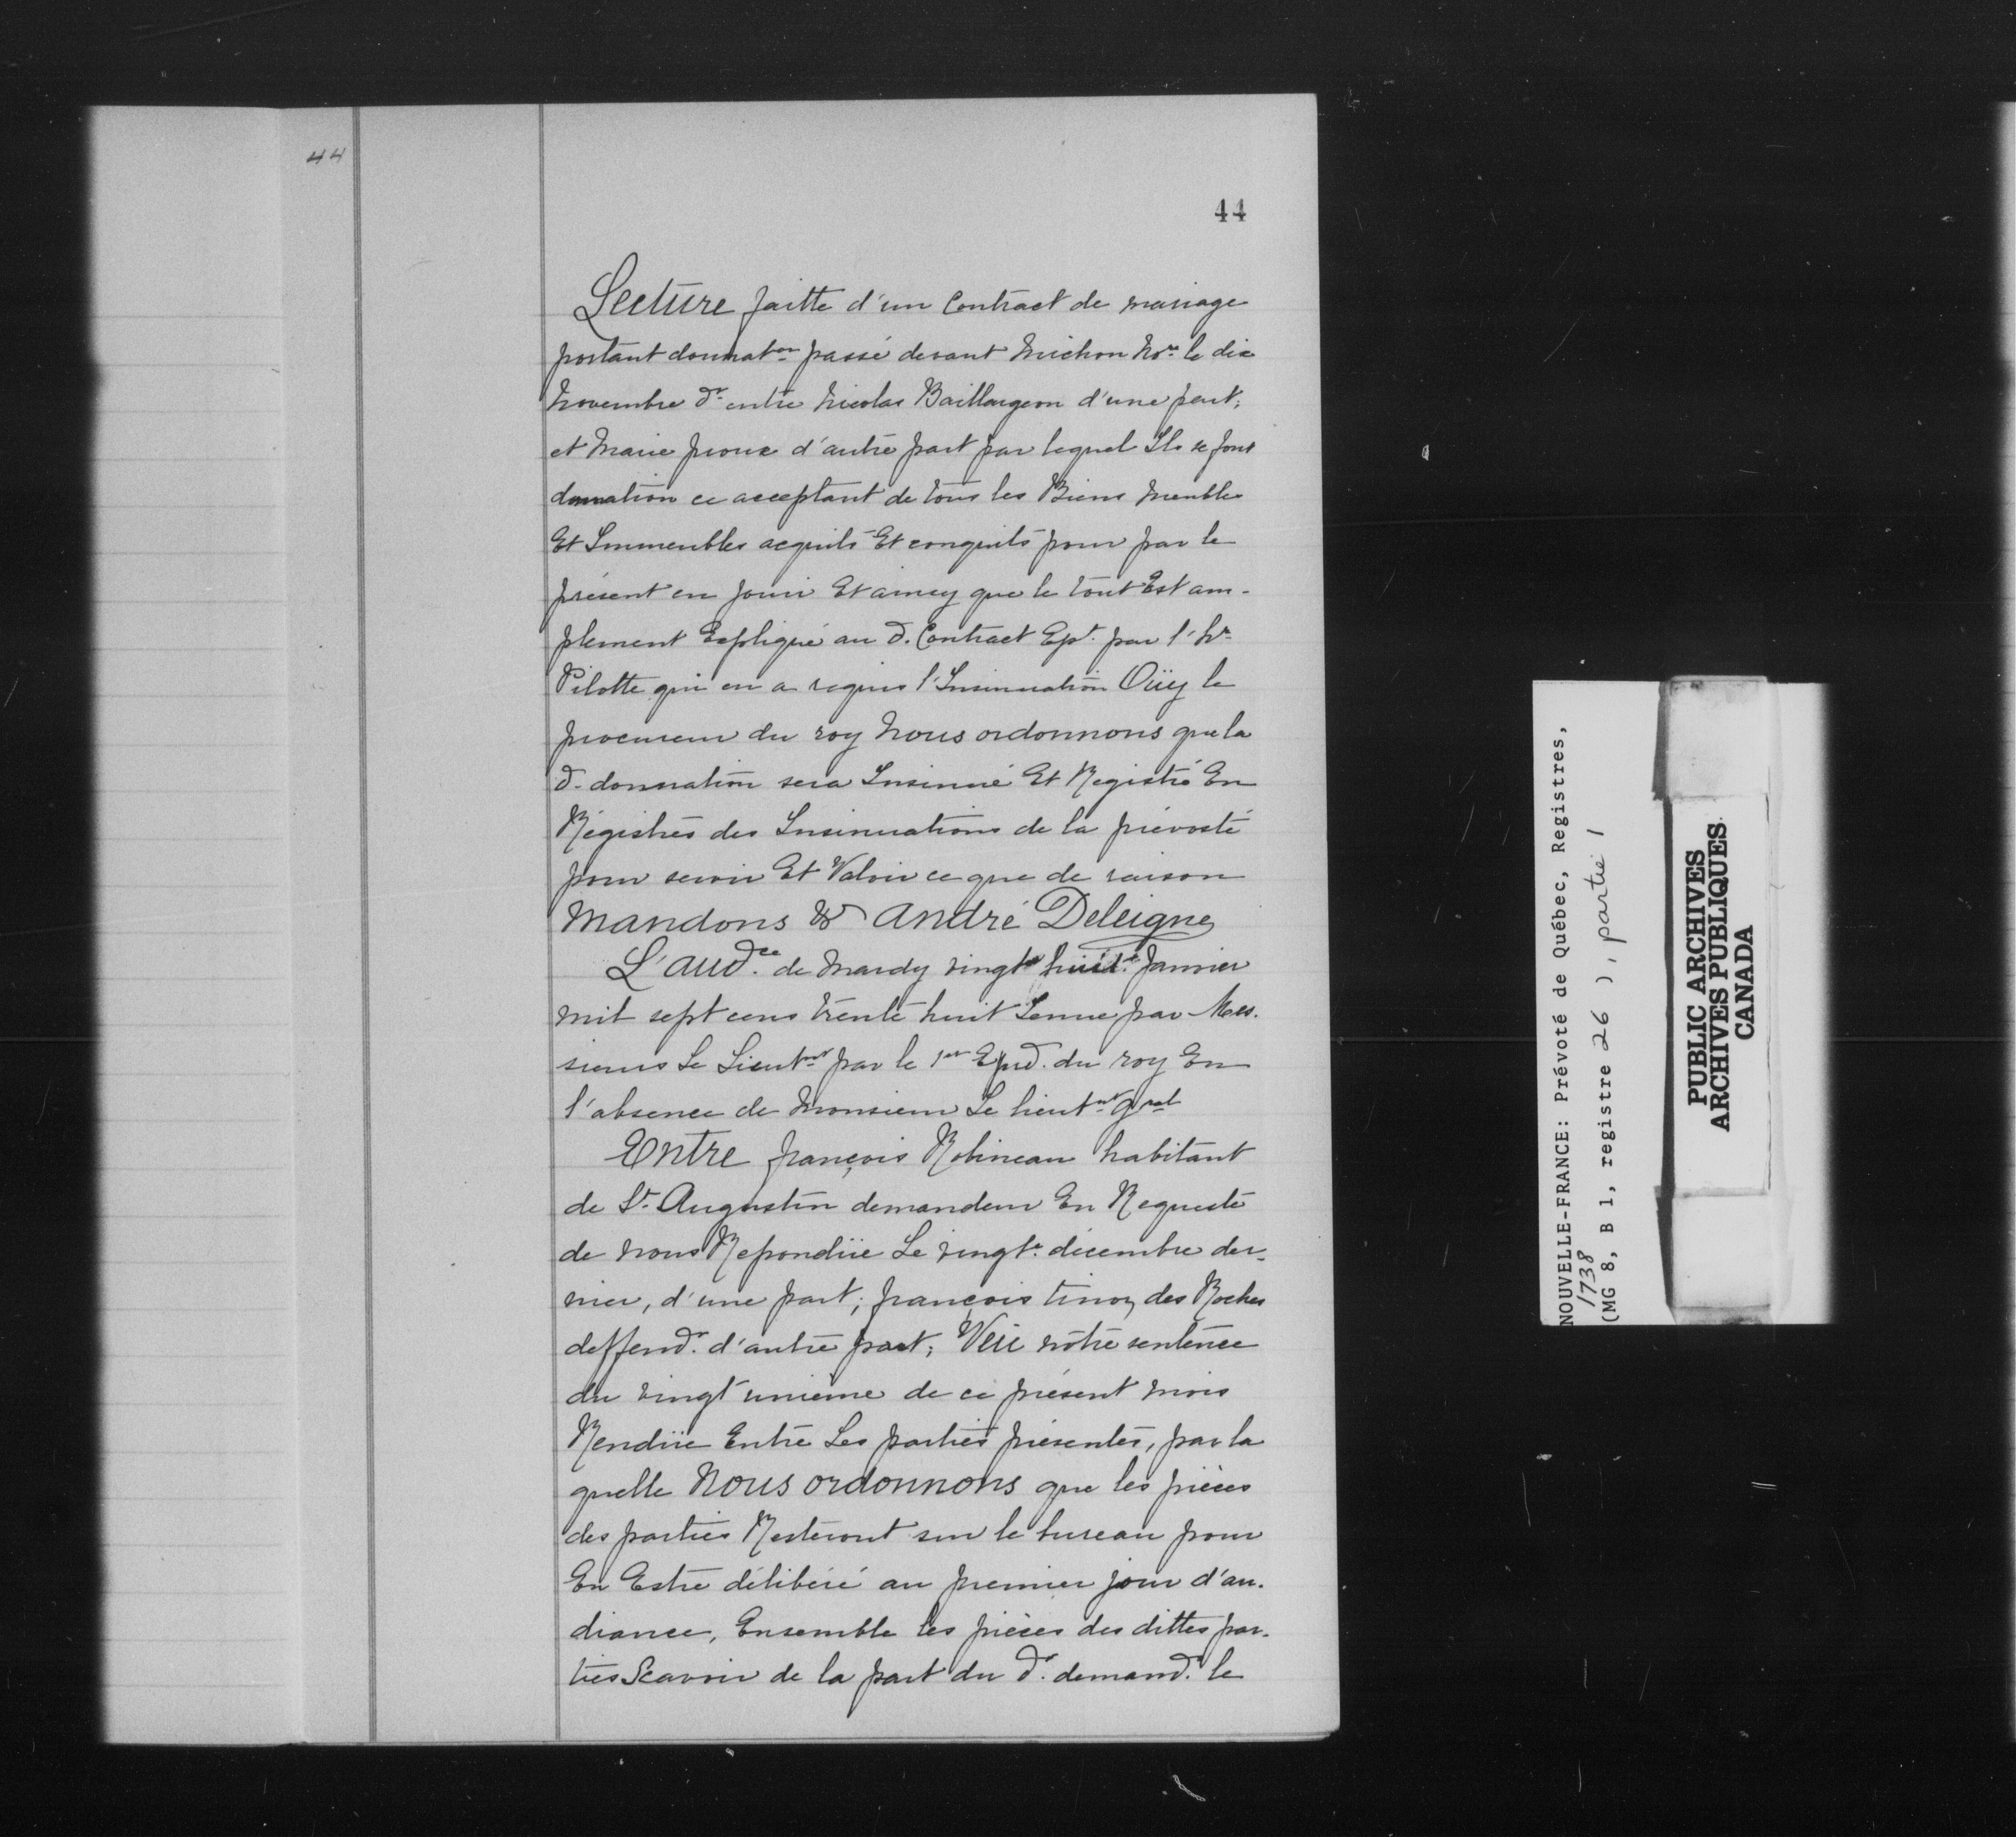 44
44
Lecture faitte d'un Contract de mariage
portant donnaton passé devant Michon Nore le dix
Novembre dr entre Nicolas Baillargeon d'une part;
et Marie proux d'autre part par lequel Ils se font
donnation ce acceptant de tous les Biens Meubles
Et Immeubles acquits Et conquits pour par le
présent en jouir Et ainsy que le tout Est am-
plement Expliqué au d. Contract Ept. par l'hr
Pilotte qui en a requis l'Insinuation Oüy le
procureur du roy Nous ordonnons que la
d. donnation sera Insinué Et Registré En
Régistres des Insinuations de la prévosté
pour servir Et Valoir ce que de raison
Mandons & André Deleigne
L'audce de Mardy vingt huite Janvier
mil sept cens trente huit Tenue par Mes.
sieurs Le Lieutnt par le 1er du roy En
l'absence de Monsieur Le lieutnt gnal
Entre françois Robineau habitant
de St Augustin demandeur En Requeste
de nous Repondüe Le vingte décembre der-
nier, d'une part; françois tinon des Roches
deffendr. d'autre part; Veü nôtre sentence
du vingt unieme de ce présent mois
Rendüe Entre Les parties présentes, par la
quelle Nous ordonnons que les pièces
des parties Resteront sur le bureau pour
En Estre délibéré au premier jour d'au.
diance, Ensemble les pièces des dittes par.
ties Scavoir de la part du dr. demandr. le
NOUVELLE-FRANCE: Prévoté de Québec, Registres,
1738
(MG 8, B 1, registre 26 ), partie 1
PUBLIC ARCHIVES
ARCHIVES PUBLIQUES
CANADA